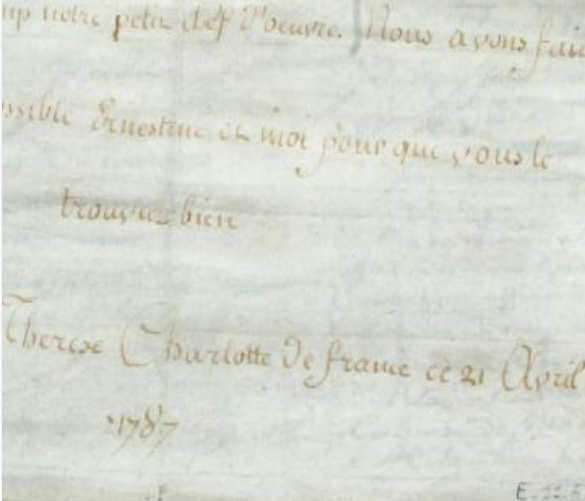 notre petit chef d'oeuvre. Nous avons fait
Ernestine et moi pour que vous le
trouviez bien
Therese Charlotte De france ce 21 Avril
1787
E.